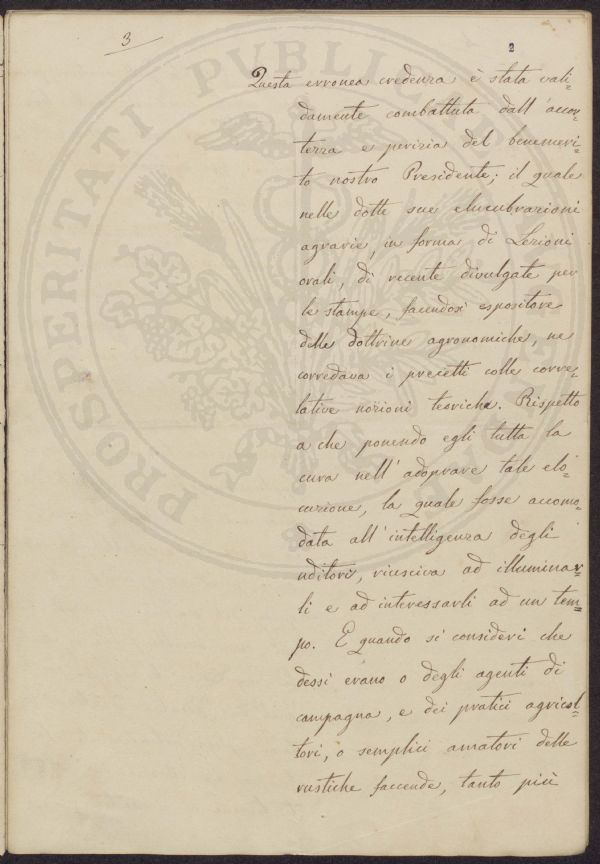 3
2
Questa erronea credenza è stata vali=
damente combattuta dall'accor=
tezza e perizia del benemeri=
to nostro Presidente; il quale
nelle dotte sue elucubrazioni
agrarie, in forma di Lezioni
orali, di recente divulgate per
le stampe, facendosi espositore
delle dottrine agronomiche, ne
corredava i precetti colle corre=
lative nozioni teoriche. Rispetto
a che ponendo egli tutta la
cura nell'adoprare tale elo=
cuzione, la quale fosse accomo=
data all'intelligenza degli
uditori, riusciva ad illuminar=
li e ad interessarli ad un tem=
po. E quando si consideri che
dessi erano o degli agenti di
campagna, e dei pratici agricol=
tori, o semplici amatori delle
rustiche faccende, tanto più
PROSPERITATI PUBLI